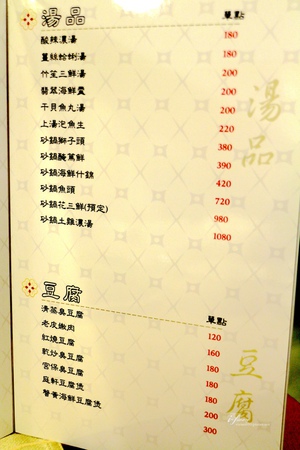 湯品 單點
酸辣濃湯 180
薑絲蛤蜊湯 180
竹笙三鮮湯 200
翡翠海鮮羹 200
干貝魚丸湯 200
上湯泡魚生 220
砂鍋獅子頭 380
砂鍋醃篤鮮 390
砂鍋海鮮什錦 420
砂鍋魚頭 720
砂鍋花三鮮(預定) 980
砂鍋土雞濃湯 1080
湯品
豆腐 單點
清蒸臭豆腐 120
老皮嫩肉 160
紅燒豆腐 180
乾炒臭豆腐 180
宮保臭豆腐 180
庭軒豆腐煲 200
蟹黃海鮮豆腐煲 300
豆腐